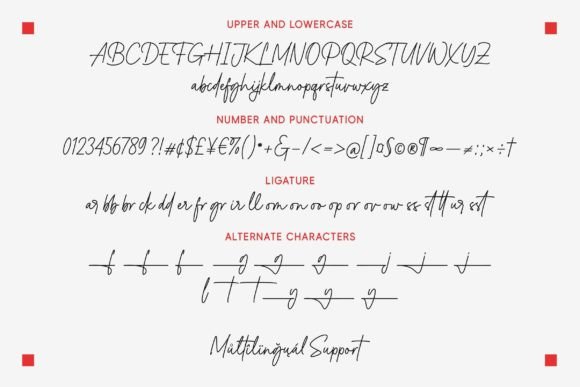 UPPER AND LOWERCASE
ABCDEFGHIJKLMNOPQRSTUVWXYZ
abcdefghijklmnopqrstuvwxyz
NUMBER AND PUNCTUATION
0123456789 ?!#¢$£¥€%()•+&-/<=>@[]¤§©®¶∞—≠:;×÷†
LIGATURE
ar bb br ck dd er fr gr ir ll om on oo op or ov ow ss st tt ur sst
ALTERNATE CHARACTERS
f f f g g g j j j
l t t y y y
Můltílïňğųàl Support